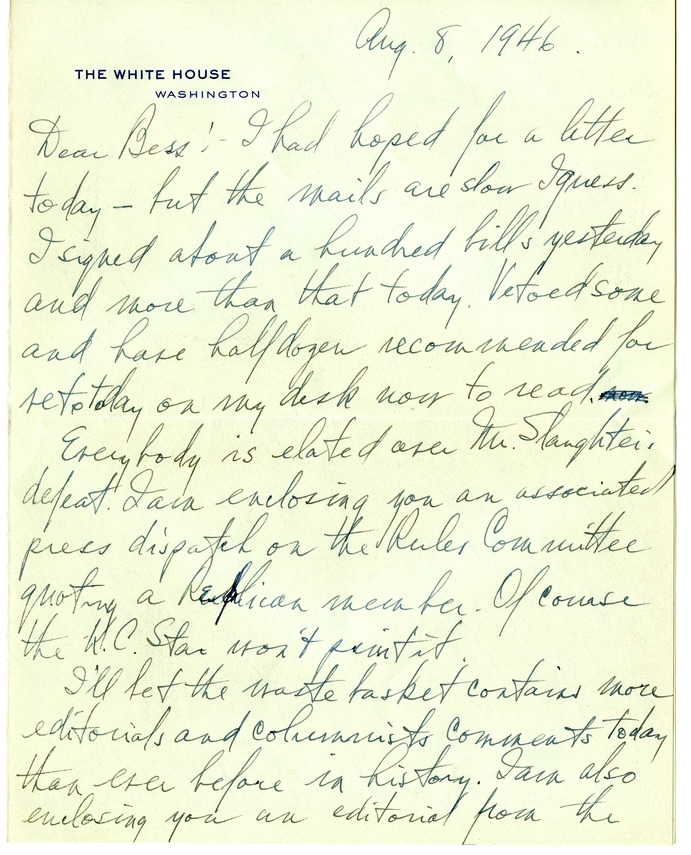 Aug. 8, 1946.
THE WHITE HOUSE
WASHINGTON
Dear Bess:- I had hoped for a letter
today - but the mails are slow I guess.
I signed about a hundred bills yesterday
and more than that today. Vetoed some
and have half dozen recommended for
veto today on my desk now to read.
Everybody is elated over Mr. Slaughter's
defeat. I am enclosing you an associated
press dispatch on the Rules Committee
quoting a Republican member. Of course
the K.C. Star won't print it.
I'll bet the waste basket contains more
editorials and columnists comments today
than ever before in history. I am also
enclosing you an editorial from the